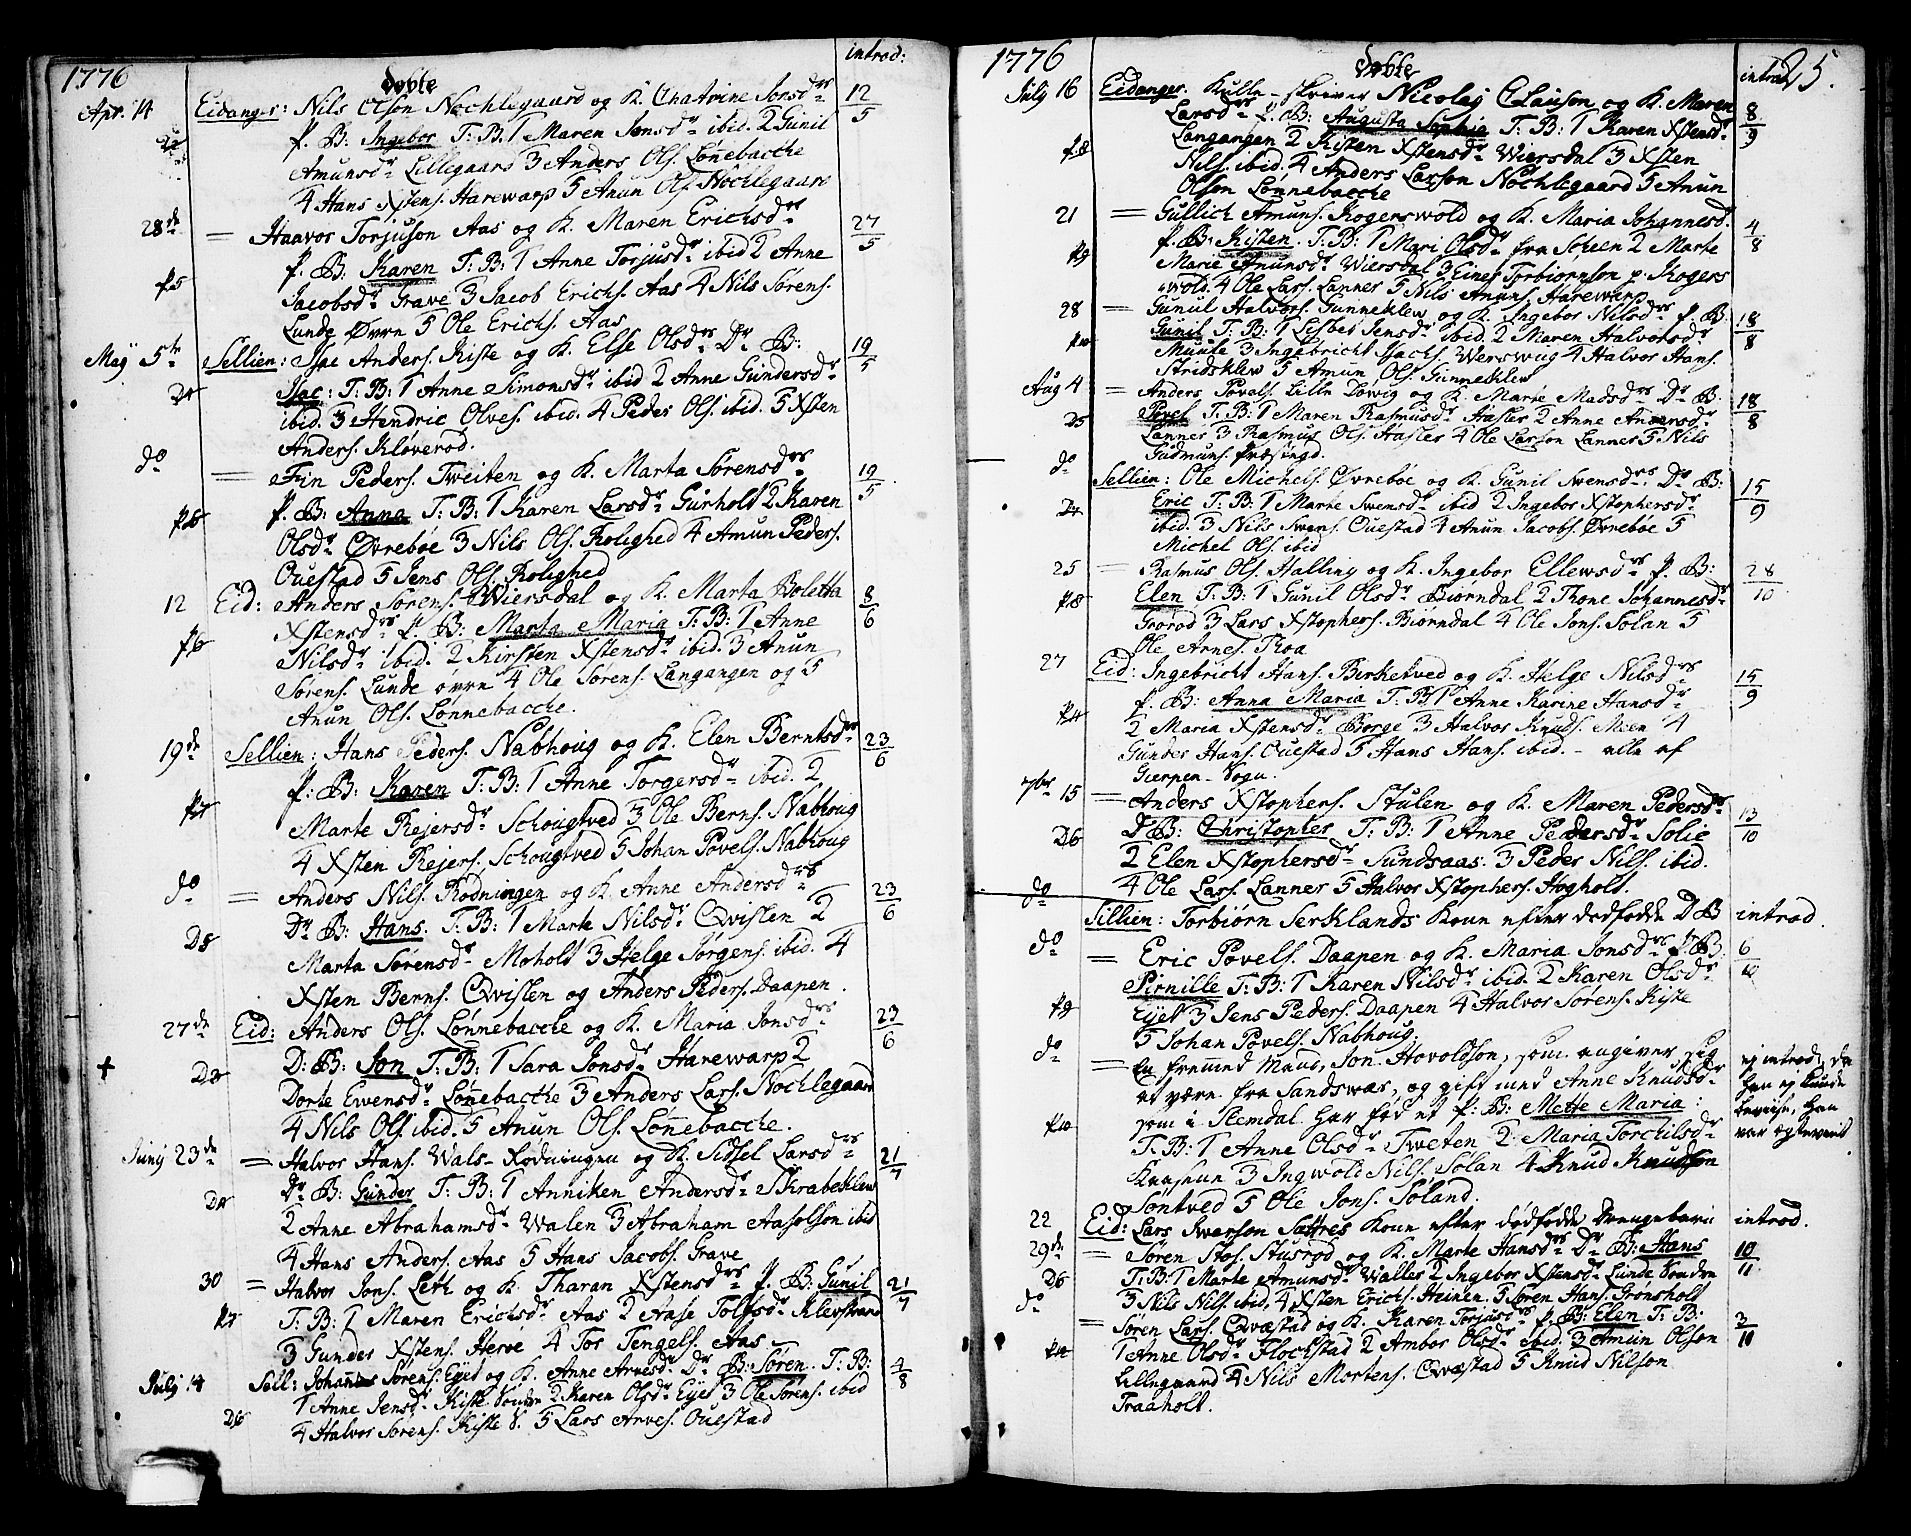 1776 Døbte introd:
Apr. 14 Eidanger: Nils Olson Nochlegaard og K. Chatrine Jonsdr 12/5
P. B: Ingebor T: B: 1 Maren Jonsdr ibid. 2 Gunil
Amunsdr Lillegaard 3 Anders Ols. Lønebacche
4 Hans Xstens. Harewarp 5 Anun Ols. Nochlegaard
28de = Haavor Torjuson Aas og K. Maren Erichsdr 27/5
P. B: Karen T: B: 1 Anne Torjusdr ibid 2 Anne
P5 Jacobsdr Grave 3 Jacob Erichs. Aas 4 Nils Sørens.
Lunde Øvrn 5 Ole Erichs. Aas
Maÿ 5te Sellien: Isac Anders. Kiste og K. Else Olsdr Dr B: 19/5
Isac: T: B: 1 Anne Simonsdr ibid 2 Anne Gundersdr
ibid. 3 Hendric Olves. ibid. 4 Peder Ols. ibid. 5 Xsten
Anders. Kløverød.
do = Fin Peders. Tweiten og K. Marta Sørensdr 19/5
P. B: Anna T: B: 1 Karen Larsdr Gurholt 2 Karen
Olsdr Øvrebøe 3 Nils Ols. Rolighed 4 Amun Peders.
Ouestad 5 Jens Ols. Rolighed
12 Eid: Anders Sørens. Wiersdal og K. Marta Boletta 8/6
Xstensdr P. B: Marta Maria T: B: 1 Anne
P6 Nilsdr ibid. 2 Kirsten Xstensdr ibid. 3 Anun
Sørens. Lunde øvrn 4 Ole Sørens. Langangen og 5
Anun Ols. Lønnebacche.
19de Sellien: Hans Peders. Nabhoug og K. Elen Berntsdr 23/6
P: B: Karen T: B: 1 Anne Torgersdr ibid. 2
P7 Marte Rejersdr Schougtved 3 Ole Berns. Nabhoug
4 Xsten Rejers. Schougtved 5 Johan Povels. Nabhoug
do = Anders Nils. Rødningen og K. Anne Andersdr 23/6
Dr B: Hans. T: B: 1 Marte Nilsdr Qvislen 2
Marta Sørensdr Moholt 3 Helge Jørgens. ibid. 4
Xsten Berns. Qvislen og Anders Peders. Daapen.
27de Eid: Anders Ols. Lønnebacche og K. Maria Jonsdr 23/6
+ D: B: Jon T: B: 1 Sara Jonsdr Harewarp 2
Dorte Ewensdr Lønebacche 3 Anders Lars. Nochlegaard
4 Nils Ols. ibid. 5 Anun Ols. Lønebacche.
Junÿ 23de = Halvor Hans. Wals-Rødningen og K. Sidsel Larsdr 21/7
Dr B: Gunder T: B: 1 Anniken Andersdr Skrabeklew
2 Anne Abrahamsdr Walen 3 Abraham Aasolson ibid
4 Hans Anders. Aas 5 Hans Jacobs. Grave
30 = Halvor Jons. Leth og K. Tharan Xstensdr P. B: Gunil 21/7
T: B: 1 Maren Erichsdr Aas 2 Aase Tolfsdr Klevstrand
3 Gunder Xstens. Herøe 4 Tor Tengels. Aas
Julÿ 14 Sell: Johannes Sørens. Eÿet og K. Anne Arvesdr Dr B: Søren. T: B: 4/8
1 Anne Jensdr Kiste Sondre 2 Karen Olsdr Eÿet 3 Ole Sørens. ibid
4 Halvor Sørens. Kiste S. 5 Lars Arves. Ouestad
1776 Døbte introd: 25.
Julÿ 16 Eidanger. Kulle-skriver Nicolaj Clauson og K. Maren 8/9
Larsdr P. B: Augusta Sophia T: B: 1 Karen Xstensdr
P8 Langangen 2 Kisten Xstensdr Wiersdal 3 Xsten
Nils. ibid. 4 Anders Larson Nochlegaard 5 Anun
Olson Lønnebacche
21 = Gullich Amuns. Kogerswold og K. Maria Johannesdr. 4/8
P. B: Kisten. T: B: 1 Mari Olsdr fra Scheen 2 Marte
P9 Marie Amunsdr Wiersdal 3 Einer Torbiørnson p. Kogers
wold. 4 Ole Lars. Lanner 5 Nils Anuns. Harewarp
28 = Gunul Halvors. Gunneklew og K. Ingebor Nilsdr P. B: 18/8
Gunil T: B: 1 Lisbet Jensdr ibid. 2 Maren Halvorsdr
P10 Munte 3 Ingebricht Isachs. Werswug 4 Halvor Hans.
Stridsklew 5 Amun Ols. Gunneklew
Aug 4 = Anders Povels. Lille Løwig og K. Marie Madsdr Dr B: 18/8
D5 Povel T: B: 1 Maren Rasmusdr Hasler 2 Anne Andersdr
Lanner 3 Rasmus Ols. Hasler 4 Ole Larson Lanner 5 Nils
Gudmuns. Præsteqd.
do Sellien: Ole Michels. Øvrebøe og K. Gunil Svensdr. Dr B: 15/9
Eric T: B: 1 Marte Svensdr ibid 2 Ingebor Xstophersdr
ibid. 3 Nils Swens. Ouestad 4 Anun Jacobs. Øvrebøe 5
Michel Ols. ibid
25 = Rasmus Ols. Halling og K. Ingebor Ellewsdr P. B: 28/10
Elen T: B: 1 Gunil Olsdr Biørndal 2 Thone Johannesdr
Grorød 3 Lars Xstophers. Biørndal 4 Ole Jons. Solan 5
Ole Arnes. Thoa
27 Eid: Ingebricht Hans. Birketved og K. Helge Nilsdr 15/9
P. B: Anna Maria T: B: 1 Anne Karine Hansdr
2 Maria Xstensdr Borge 3 Halvor Knuds. Meen 4
Gunder Hans. Ouestad 5 Hans Hans. ibid. - alle af
Gierpen-Sogn.
7br 15 = Anders Xstophers. Stulen og K. Maren Pedersdr 13/10
D6 Dr B: Christopher T: B: 1 Anne Pedersdr Solie
2 Elen Xstophersdr Sundsaas: 3 Peder Nils. ibid.
4 Ole Lars. Lanner 5 Halvor Xstophers. Hogholt.
do Sillien: Torbiørn Serklands Kone efter dødfødde D B introd.
do = Eric Povels. Daapen og K. Maria Jonsdr P. B: 6/10
Pirnille T: B: 1 Karen Nilsdr ibid. 2 Karen Olsdr
Eÿet 3 Jens Peders. Daapen 4 Halvor Sørens. Kiste
5 Johan Povels. Nabhoug.
do = En fremmed Mand, Jon Hovoldson, som angiver sig ej introd, da
at være fra Sandswær, og gift med Anne Knudsdr han ej kunde
som i Slemdal har fød et P. B: Mette Maria: bevise, han
T: B: 1 Anne Olsdr Tweten 2 Maria Torchilsdr var egteviet
3 Ingwold Nils. Solan 4 Knud Knudson
Søntved 5 Ole Jons. Søland.
22 Eid: Lars Swarson Sættres Kone efter dødfødde Drengebarn introd.
29de = Søren Stos. Stusrød og K. Marte Hansdr Dr B: Hans 10/11
T: B: 1 Marte Amunsdr Waller 2 Ingebor Xstensdr Lunde Søndre
3 Nils Nils. ibid, 4 Xsten Erichs. Heinen. 5 Søren Hans. Gronsholt
do = Søren Lars. Qvæstad og K. Karen Torjusdr P. B: Elen T: B: 3/11
1 Anne Olsdr Flochstad 2 Ambor Olsdr ibid. 3 Amun Olson
Lillegaard 4 Nils Mortens. Qvæstad 5 Knud Nilson
Traaholt.